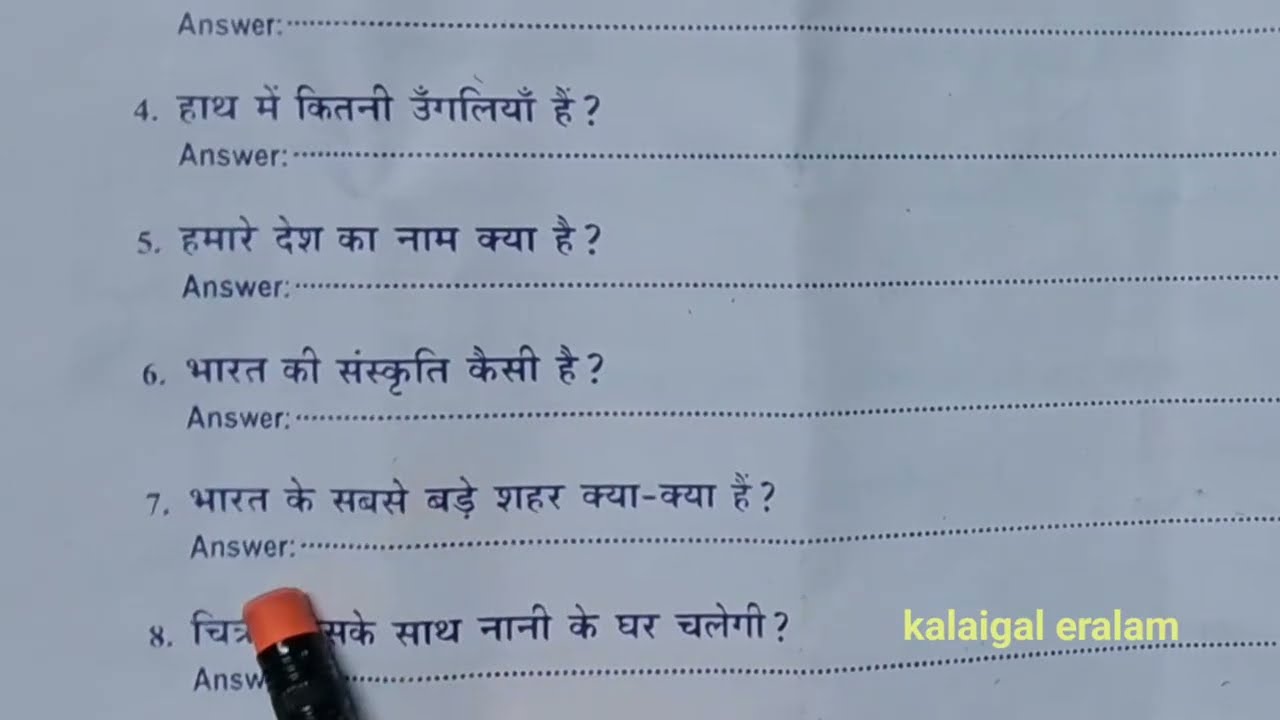 Answer:
4. हाथ में कितनी उँगलियाँ हैं?
Answer:
5. हमारे देश का नाम क्या है?
Answer:
6. भारत की संस्कृति कैसी है?
Answer:
7. भारत के सबसे बड़े शहर क्या-क्या हैं?
Answer:
8. साथ नानी के घर चलेगी?
kalaigal eralam